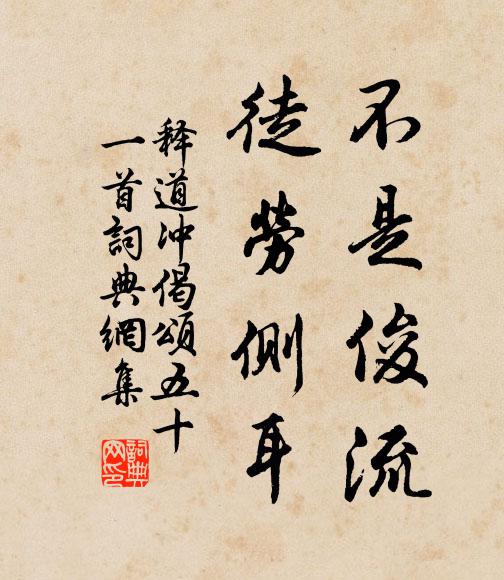 不是俊流
徒勞側耳
释道冲偈頌五十
一首詞典網集
詞典
网印